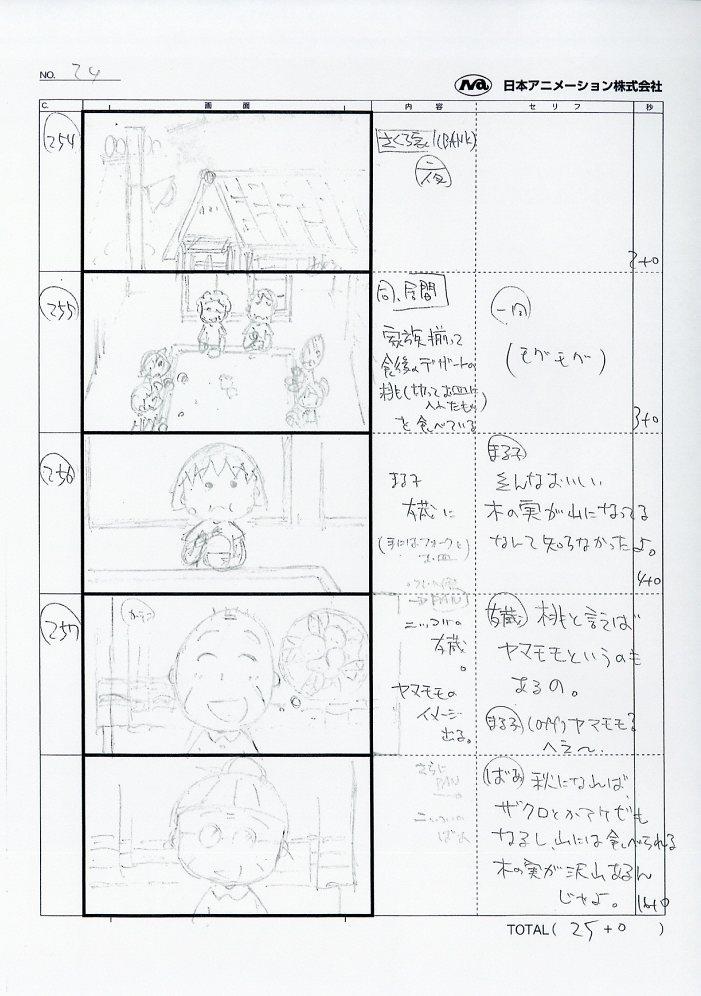 NO. 24
日本アニメーション株式会社
C. 画面 内容 セリフ 秒
254
(BANK)
夜
2+0
255
同、居間
家族揃って
食後のデザートの
桃(切ってお皿に
入れたもの)
を食べている
一同
(モグモグ)
3+0
256
まる子
友蔵に
(手にはフォークとお皿)
まる子
そんなおいしい
木の実が山になってる
なんて知らなかったよ。
4+0
257
ニッコリの
友蔵。
ヤマモモの
イメージ
出る。
友蔵 桃と言えば
ヤマモモというのも
あるの。
まる子 (OFF)ヤマモモ?
へえ〜
さらに
PAN
ばあ 秋になれば、
ザクロとかアケビも
なるし山には食べられる
木の実が沢山あるん
じゃよ。
16+0
TOTAL( 25+0 )